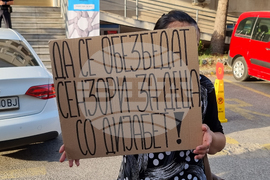 ДА СЕ ОБЕЗБЕДАТ
СЕНЗОРИ ЗА ДЕЦА
СО ДИЈАБЕТ!
BJ